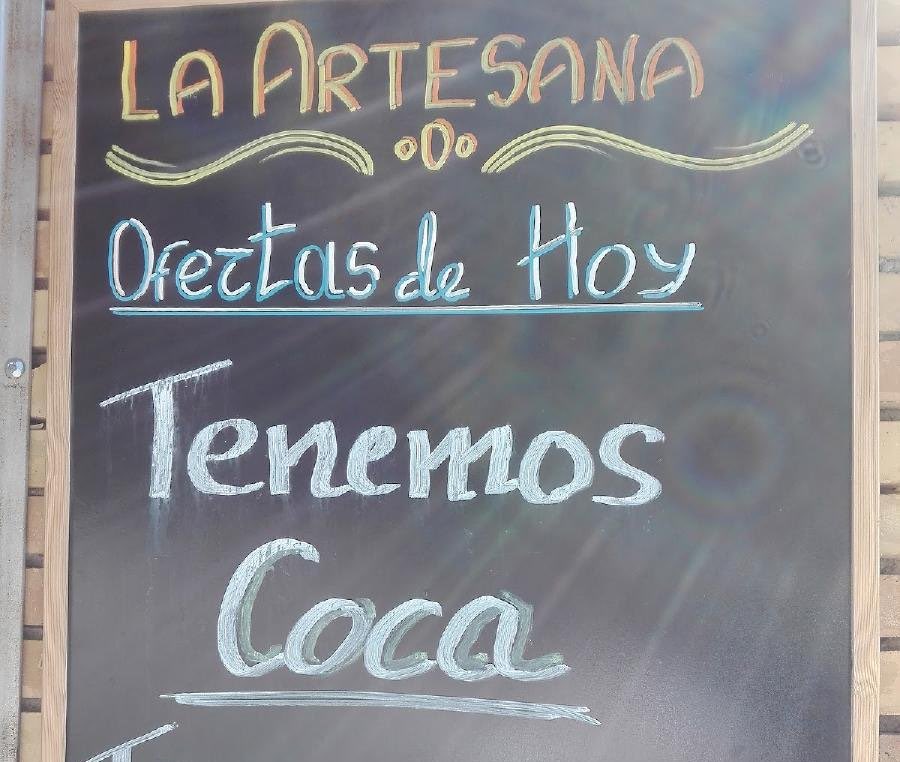 LA ARTESANA
Ofertas de Hoy
Tenemos
Coca
T